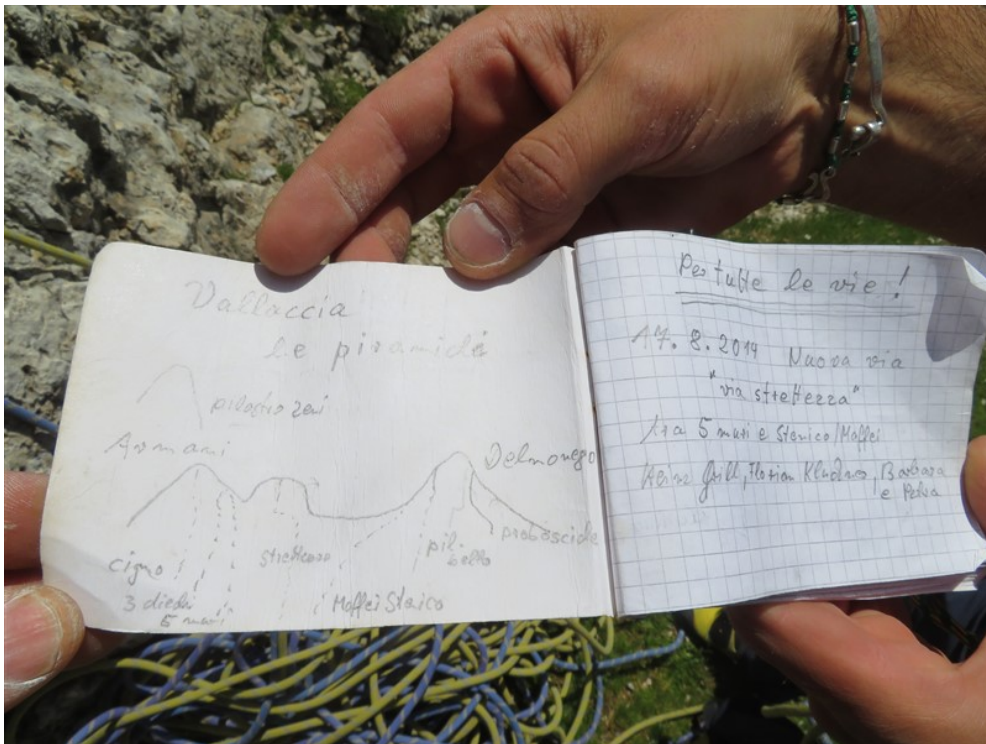 Vallaccia
le piramidi
pilastro Zeni
Armani
Delmonego
proboscide
pil.
bello
strettezza
cigno
3 diedri
5 muri
Maffei Storico
Per tutte le vie!
17. 8. 2014 Nuova via
"via strettezza"
tra 5 muri e Storico/Maffei
Heinz Grill, Florian Kluckner, Barbara
e Petra